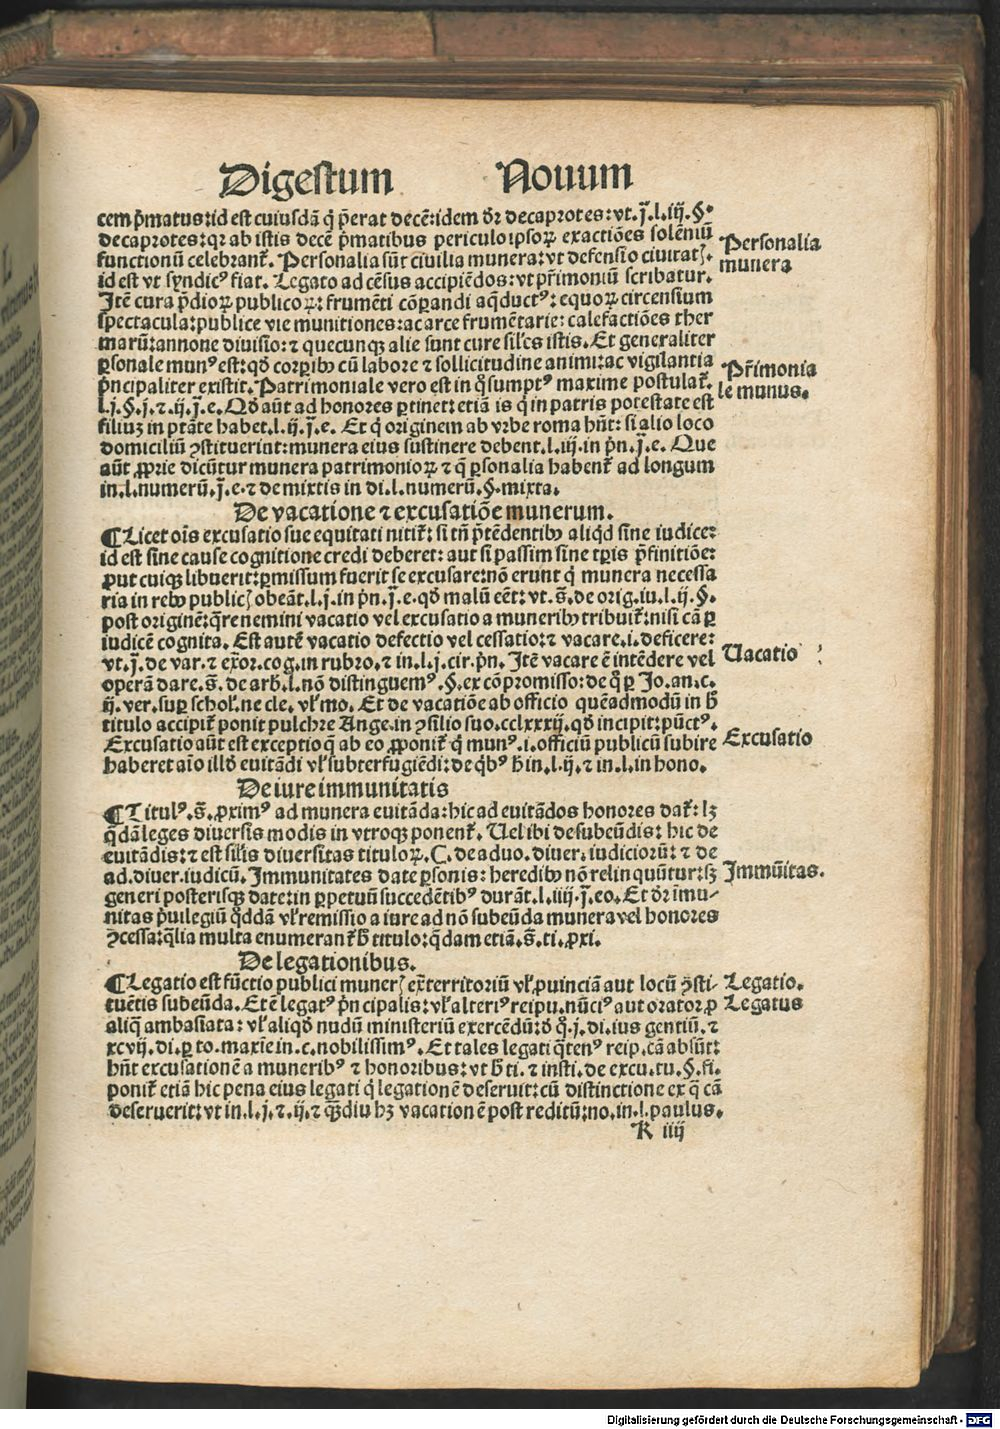 Digestum Nouum
cem p̄matus: id est cuiusdā q̇ p̄erat decē: idem dr̄ decaprotes: vt. j̄. l. iij. §.
decaprotes: qꝛ ab istis decē p̄matibus periculo ipsoꝝ exactiōes solēniū
functionū celebrant̄. Personalia sūt ciuilia munera: vt defensio ciuitatꝭ.
id est vt syndicꝰ fiat. Legato ad cēsus accipiēdos: vt pr̄imoniū scribatur.
Itē cura p̄dioꝝ publicoꝝ: frumēti cōparandi aq̄ductꝰ: equoꝝ circensium
spectacula: publice vie munitiones: ac arce frumētarie: calefactiōes ther
marū: annone diuisio: ⁊ quecunqꝫ alie sunt cure sil̄es istis. Et generaliter
ꝑsonale munꝰ est: qd̄ coꝛꝑibꝰ cū labore ⁊ sollicitudine animi: ac vigilantia
p̄ncipaliter existit. Patrimoniale vero est in q̄ sumptꝰ maxime postulat̄.
l. j. §. j. ⁊. ij. j̄. e. Qd̄ aūt ad honores ꝑtinet: etiā is q̇ in patris potestate est
filiuz in ptāte habet. l. ij. j̄. e. Et q̇ originem ab vrbe roma hn̄t: si alio loco
domiciliū ꝯstituerint: munera eius sustinere debent. l. iij. in pn̄. j̄. e. Que
aūt ꝓprie dicūtur munera patrimonioꝝ ⁊ q̄ ꝑsonalia habent̄ ad longum
in. l. numerū. j̄. e. ⁊ de mixtis in di. l. numerū. §. mixta.
De vacatione ⁊ excusatiōe munerum.
¶Licet oīs excusatio sue equitati nitit̄: si tn̄ p̄tēdentibꝰ aliqd̄ sine iudice:
id est sine cause cognitione credi deberet: aut si passim sine tꝑis p̄finitiōe:
ꝓut cuiqꝫ libuerit: ꝑmissum fuerit se excusare: nō erunt q̇ munera necessa
ria in rebꝰ publicꝭ obeāt. l. j. in pn̄. j̄. e. qd̄ malū eēt: vt. s̄. de orig. iu. l. ij. §.
post originē: q̄re nemini vacatio vel excusatio a muneribꝰ tribuit̄: nisi cā ꝑ
iudicē cognita. Est autē vacatio defectio vel cessatio: ⁊ vacare. i. deficere:
vt. j̄. de var. ⁊ exor. cog. in rubro. ⁊ in. l. j. cir. pn̄. Itē vacare ē intēdere vel
operā dare. s̄. de arb. l. nō distinguemꝰ. §. ex cōpromisso: de q̄ ꝑ Jo. an. c.
ij. ver. suꝑ schol̄. ne cle. vl̄ mo. Et de vacatiōe ab officio quēadmodū in h̄
titulo accipit̄ ponit pulchre Ange. in ꝯsilio suo. cclxxxij. qd̄ incipit: pūctꝰ.
Excusatio aūt est exceptio q̄ ab eo ꝓponit̄ q̇ munꝰ. i. officiū publicū subire
haberet aīo illd̄ euitādi vl̄ subterfugiēdi: de qbꝰ h̄ in. l. ij. ⁊ in. l. in hono.
De iure immunitatis
¶Titulꝰ. s̄. ꝓximꝰ ad munera euitāda: hic ad euitādos honores dat̄: lꝫ
q̄dā leges diuersis modis in vtroqꝫ ponent̄. Uel ibi de subeūdis: hic de
euitādis: ⁊ est sil̄is diuersitas tituloꝝ. C. de aduo. diuer. iudicioꝛū: ⁊ de
ad. diuer. iudicū. Immunitates date ꝑsonis: heredibꝰ nō relinquūtur: sꝫ
generi posterisqꝫ date: in ꝑpetuū succedētibꝰ durāt. l. iiij. j̄. eo. Et dr̄ īmu-
nitas p̄uilegiū q̄ddā vl̄ remissio a iure ad nō subeūda munera vel honores
ꝯcessa: q̄lia multa enumerant̄ h̄ titulo: q̄dam etiā. s̄. ti. ꝓxi.
De legationibus.
¶Legatio est fūctio publici munerꝭ ex̄territoriū vl̄ ꝓuinciā aut locū ꝯsti-
tuētis subeūda. Et ē legatꝰ p̄ncipalis: vl̄ alteriꝰ reipu. nūciꝰ aut orator ꝓ
aliq̄ ambasiata: vl̄ aliqd̄ nudū ministeriū exercēdū: d̄ q̄. j. di. ius gentiū. ⁊
xcvij. di. ꝑ to. maxīe in. c. nobilissimꝰ. Et tales legati q̄tenꝰ reip. cā absūt:
hn̄t excusationē a muneribꝰ ⁊ honoribus: vt h̄ ti. ⁊ insti. de excu. tu. §. fi.
ponit̄ etiā hic pena eius legati q̇ legationē deseruit: cū distinctione ex q̄ cā
deseruerit: vt in. l. j. ⁊. ij. ⁊ q̄ꝫdiu hꝫ vacationē post reditū: no. in. l. paulus.
K iiij
Personalia
munera
Pr̄imonia
le munus.
Uacatio
Excusatio
Immūitas.
Legatio.
Legatus
Digitalisierung gefördert durch die Deutsche Forschungsgemeinschaft - DFG